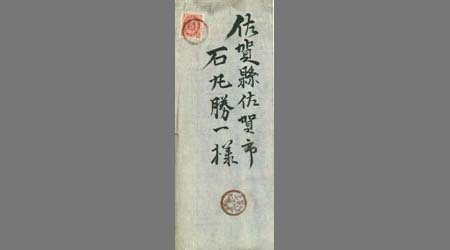 佐賀縣佐賀市
石丸勝一様